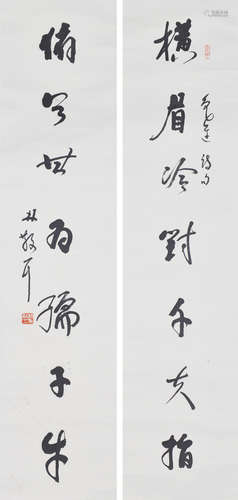 橫眉冷對千夫指
魯迅詩句
俯首甘为孺子牛
林散耳